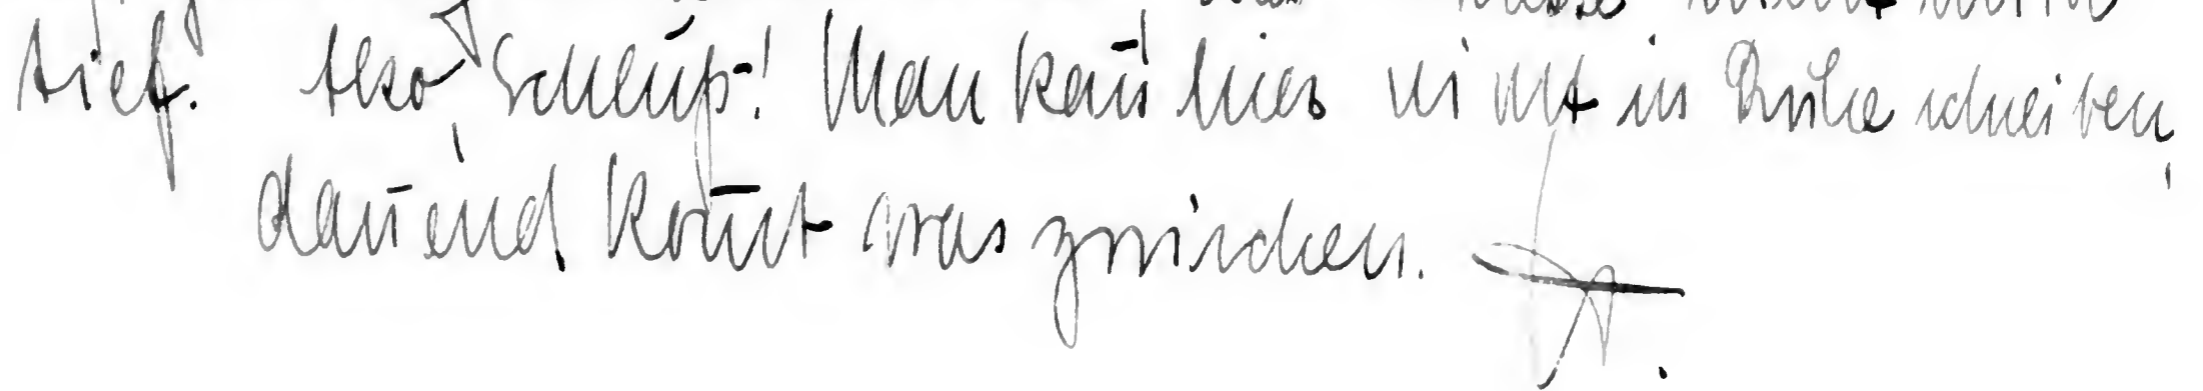 tief. Also Schluß! Man kann hier nicht in Ruhe schreiben,
dauernd kommt was zwischen.